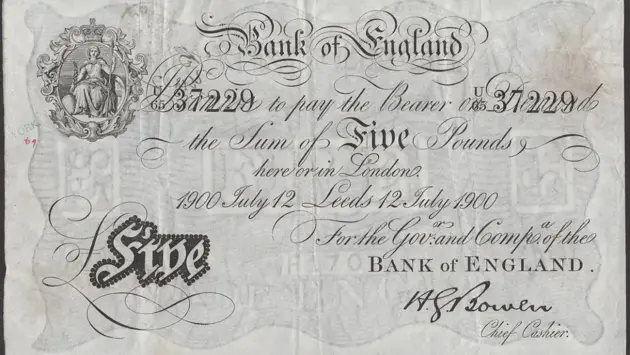 Bank of England
U/65 37229 to pay the Bearer on U/65 37229
the Sum of Five Pounds
here or in London.
1900 July 12 Leeds 12 July 1900
For the Govr. and Compa. of the
BANK of ENGLAND.
£Five
H G Bowen
Chief Cashier.